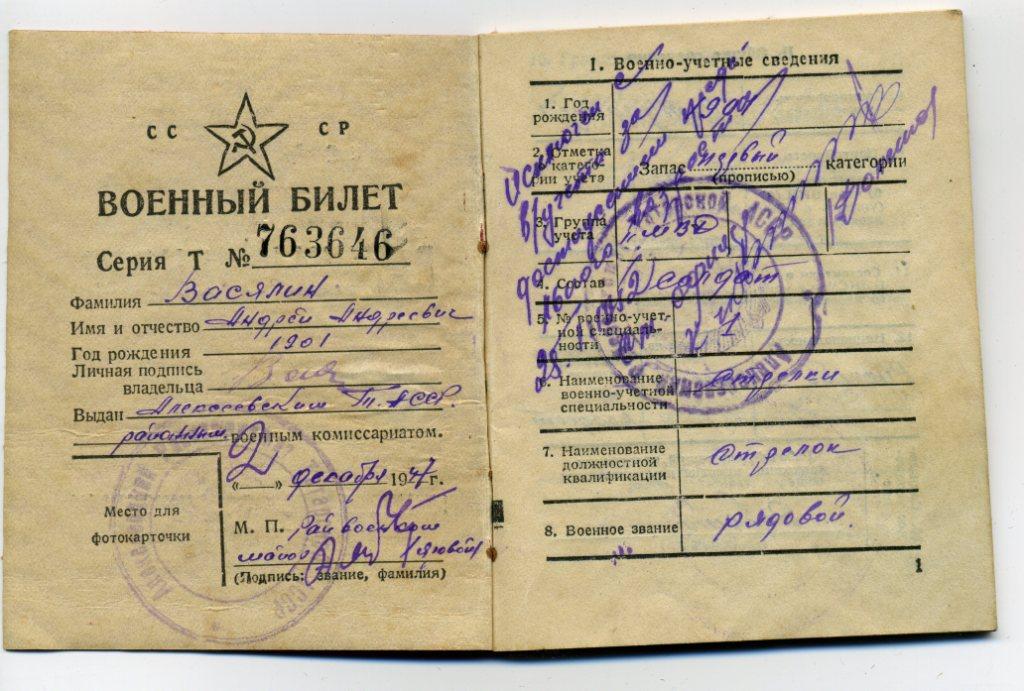 СС СР
ВОЕННЫЙ БИЛЕТ
Серия Т № 763646
Фамилия Васялин
Имя и отчество Андрей Андреевич
Год рождения 1901
Личная подпись
владельца Вася
Выдан Алексеевским Т.АССР.
районным военным комиссариатом.
„2“ декабря 1947 г.
Место для
фотокарточки
М. П. Райвоенком
майор
(Подпись: звание, фамилия)
1. Военно-учетные сведения
1. Год
рождения 1901
2. Отметка
о катего-
рии учета
Запас рядовый категории
(прописью)
3. Группа
учета
4. Состав солдат
5. № военно-учет-
ной специаль-
ности 1
6. Наименование
военно-учетной
специальности Стрелки
7. Наименование
должностной
квалификации Стрелок
8. Военное звание рядовой.
Исключен с
в/учета за
1